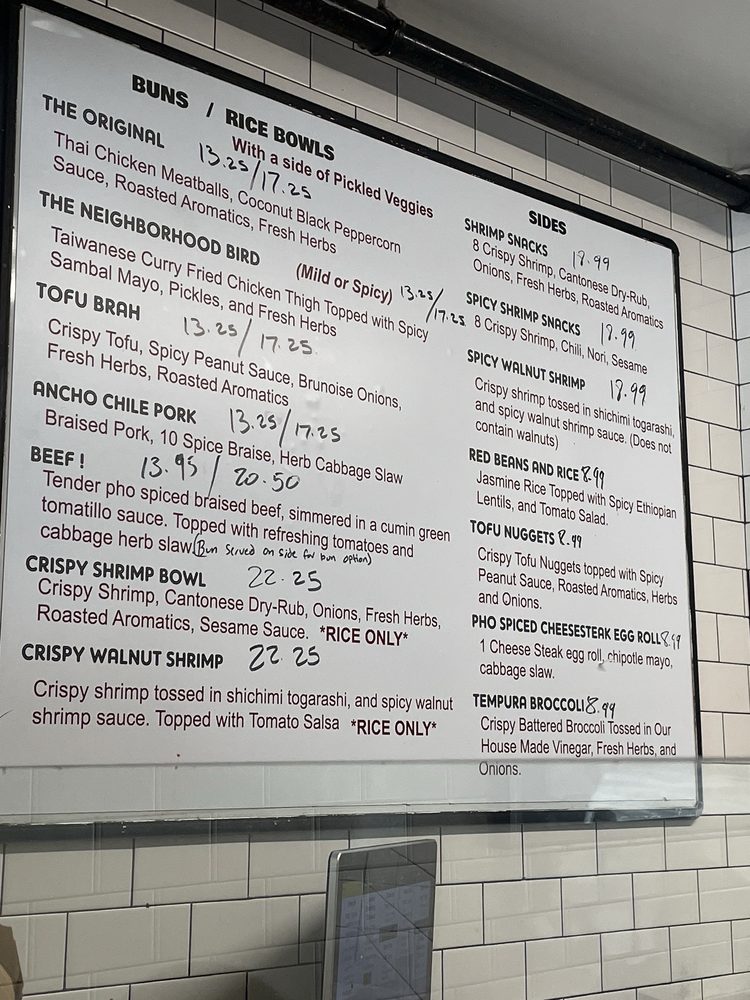 BUNS / RICE BOWLS
With a side of Pickled Veggies
THE ORIGINAL 13.25/17.25
Thai Chicken Meatballs, Coconut Black Peppercorn
Sauce, Roasted Aromatics, Fresh Herbs
THE NEIGHBORHOOD BIRD (Mild or Spicy) 13.25/17.25
Taiwanese Curry Fried Chicken Thigh Topped with Spicy
Sambal Mayo, Pickles, and Fresh Herbs
TOFU BRAH 13.25/17.25
Crispy Tofu, Spicy Peanut Sauce, Brunoise Onions,
Fresh Herbs, Roasted Aromatics
ANCHO CHILE PORK 13.25/17.25
Braised Pork, 10 Spice Braise, Herb Cabbage Slaw
BEEF! 13.95/20.50
Tender pho spiced braised beef, simmered in a cumin green
tomatillo sauce. Topped with refreshing tomatoes and
cabbage herb slaw (Bun served on side for bun option)
CRISPY SHRIMP BOWL 22.25
Crispy Shrimp, Cantonese Dry-Rub, Onions, Fresh Herbs,
Roasted Aromatics, Sesame Sauce. *RICE ONLY*
CRISPY WALNUT SHRIMP 22.25
Crispy shrimp tossed in shichimi togarashi, and spicy walnut
shrimp sauce. Topped with Tomato Salsa *RICE ONLY*
SIDES
SHRIMP SNACKS
8 Crispy Shrimp, Cantonese Dry-Rub,
Onions, Fresh Herbs, Roasted Aromatics
SPICY SHRIMP SNACKS
8 Crispy Shrimp, Chili, Nori, Sesame
SPICY WALNUT SHRIMP
Crispy shrimp tossed in shichimi togarashi,
and spicy walnut shrimp sauce. (Does not
contain walnuts)
RED BEANS AND RICE 8.99
Jasmine Rice Topped with Spicy Ethiopian
Lentils, and Tomato Salad.
TOFU NUGGETS 8.99
Crispy Tofu Nuggets topped with Spicy
Peanut Sauce, Roasted Aromatics, Herbs
and Onions.
PHO SPICED CHEESESTEAK EGG ROLL 8.99
1 Cheese Steak egg roll, chipotle mayo,
cabbage slaw.
TEMPURA BROCCOLI 8.99
Crispy Battered Broccoli Tossed in Our
House Made Vinegar, Fresh Herbs, and
Onions.